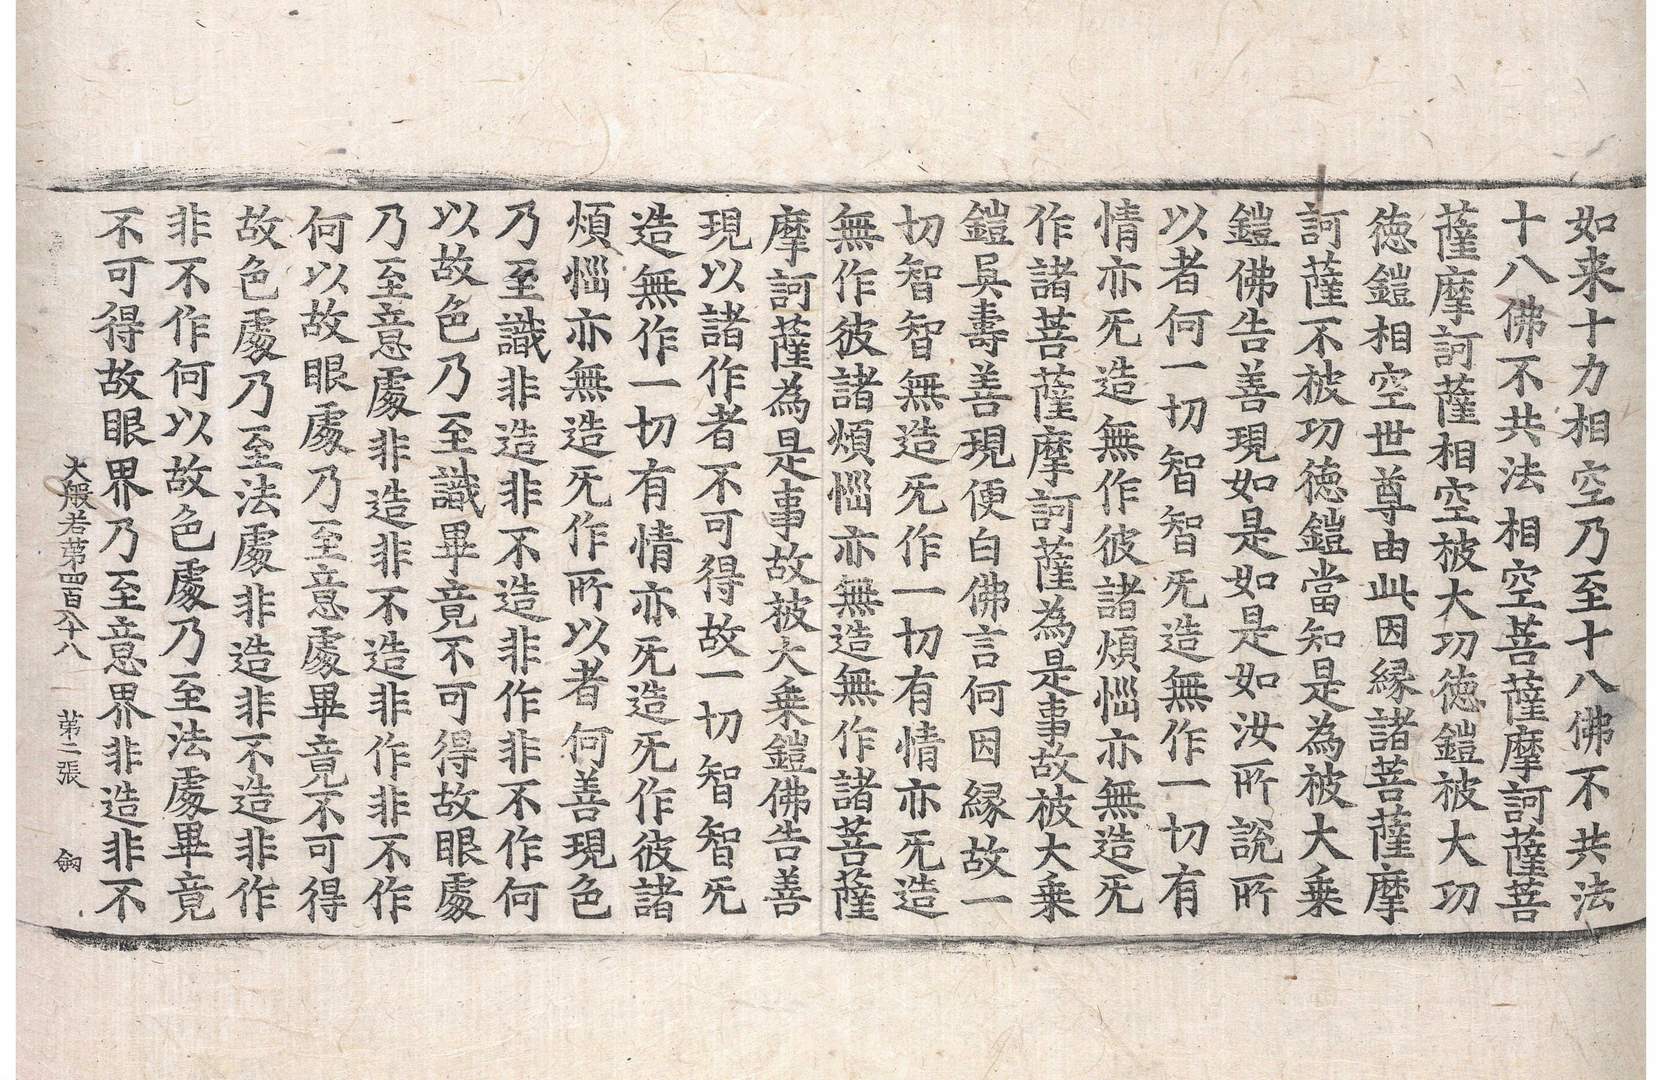 如来十力相空乃至十八佛不共法
十八佛不共法相空菩薩摩訶薩菩
薩摩訶薩相空被大功徳鎧被大功
徳鎧相空世尊由此因縁諸菩薩摩
訶薩不被功徳鎧當知是為被大乗
鎧佛告善現如是如是如汝所說所
以者何一切智智旡造無作一切有
情亦旡造無作彼諸煩惱亦無造旡
作諸菩薩摩訶薩為是事故被大乗
鎧具壽善現便白佛言何因縁故一
切智智無造旡作一切有情亦旡造
無作彼諸煩惱亦無造無作諸菩薩
摩訶薩為是事故被大乗鎧佛告善
現以諸作者不可得故一切智智旡
造無作一切有情亦旡造旡作彼諸
煩惱亦無造旡作所以者何善現色
乃至識非造非不造非作非不作何
以故色乃至識畢竟不可得故眼處
乃至意處非造非不造非作非不作
何以故眼處乃至意處畢竟不可得
故色處乃至法處非造非不造非作
非不作何以故色處乃至法處畢竟
不可得故眼界乃至意界非造非不
大般若第四百八十八 第二張 劒